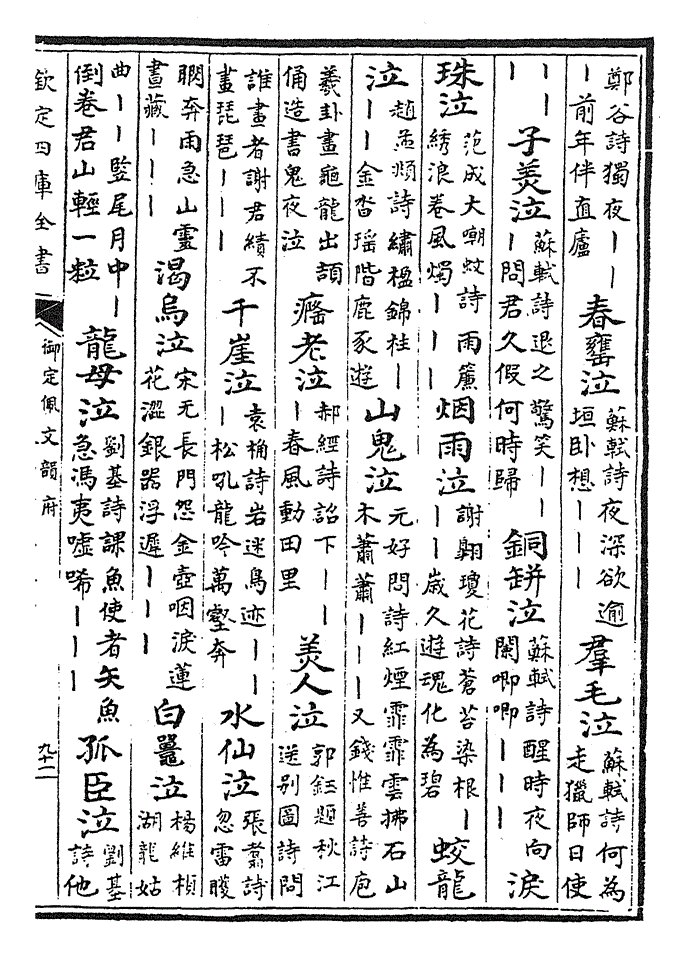 鄭谷詩獨夜丨丨丨前年伴直廬 春罋泣 蘇軾詩夜深欲逾垣卧想丨丨丨 羣毛泣 蘇軾詩何為走獵師日使
丨丨丨 子羙泣 蘇軾詩退之驚笑丨丨丨問君久假何時歸 銅缾泣 蘇軾詩醒時夜向闌唧唧丨丨丨 淚
珠泣 范成大嘲蚊詩雨簾綉浪卷風燭丨丨丨 烟雨泣 謝翺瓊花詩蒼苔染根丨丨丨歲久遊魂化為碧 蛟龍
泣 趙孟頫詩繡楹錦柱丨丨丨金沓瑶階鹿豕遊 山鬼泣 元好問詩紅煙霏霏雲拂石山木蕭蕭丨丨丨又錢惟善詩庖
羲卦畫龜龍出頡俑造書鬼夜泣 癃老泣 郝經詩詔下丨丨丨春風動田里 羙人泣 郭鈺題秋江送别圖詩問
誰畫者謝君績不畫琵琶丨丨丨 千崖泣 袁桷詩岩迷鳥迹丨丨丨松吼龍吟萬壑奔 水仙泣 張翥詩忽雷
奔雨急山靈晝藏丨丨丨 渴烏泣 宋无長門怨金壺咽淚蓮花澀銀器浮遲丨丨丨 白鼉泣 楊維楨湖龍姑
曲丨丨豎尾月中丨倒卷君山輕一粒 龍母泣 劉基詩課魚使者矢魚急馮夷噓唏丨丨丨 孤臣泣 劉基詩他
欽定四庫全書 御定佩文韻府 九十二